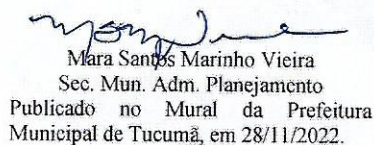 Mara Santos Marinho Vieira
Sec. Mun. Adm. Planejamento
Publicado no Mural da Prefeitura
Municipal de Tucumã, em 28/11/2022.